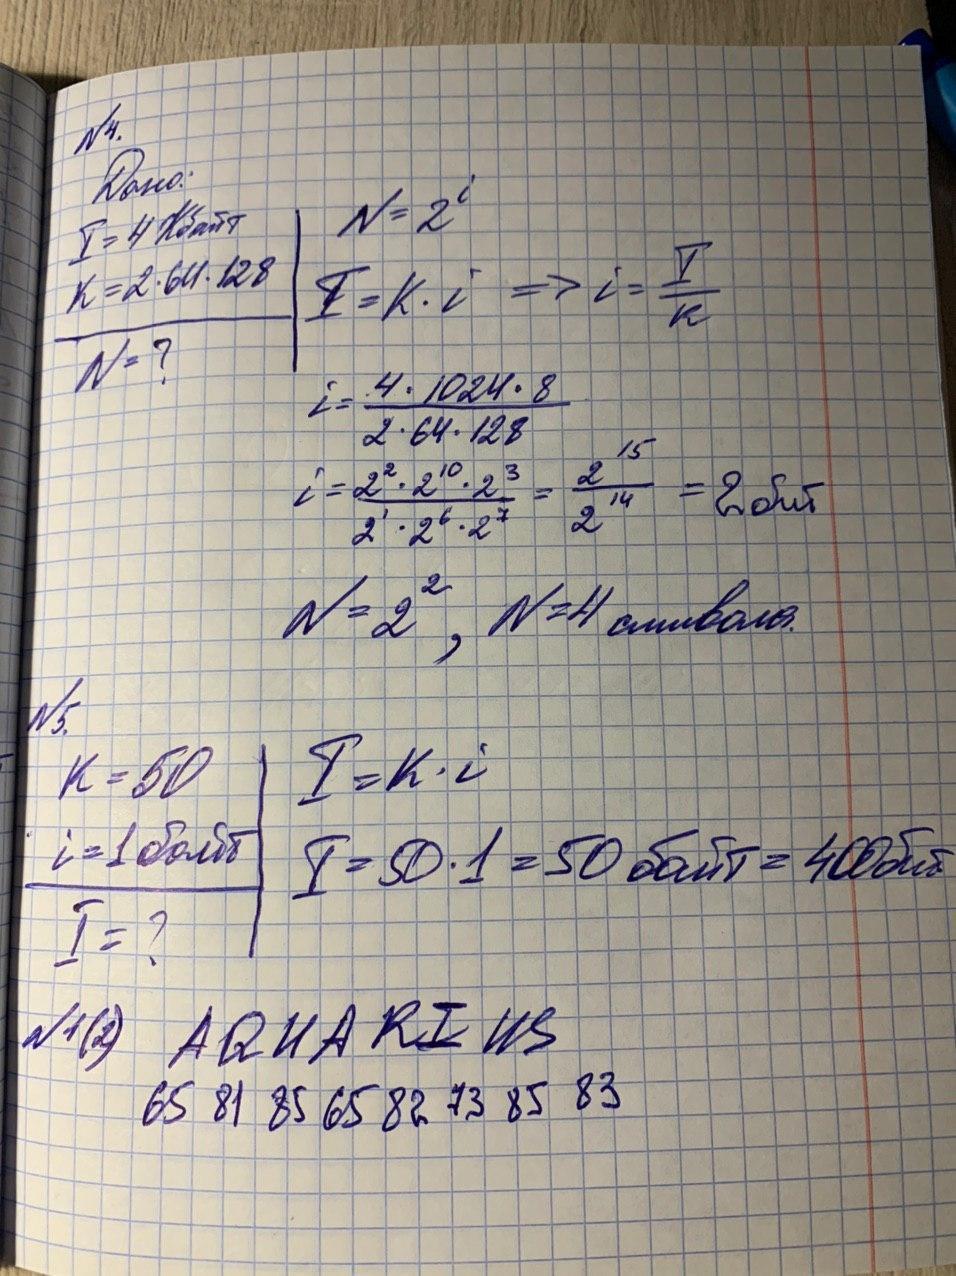 №4.
Дано:
I = 4 Кбайт
K = 2·64·128
N = ?
N = 2^i
I = K·i => i = I/K
i = 4·1024·8 / 2·64·128
i = 2^2·2^10·2^3 / 2^1·2^6·2^7 = 2^15 / 2^14 = 2 бит
N = 2^2, N = 4 символа.
№5.
K = 50
i = 1 байт
I = ?
I = K·i
I = 50·1 = 50 байт = 400 бит
№1(2) AQUARIUS
65 81 85 65 82 73 85 83